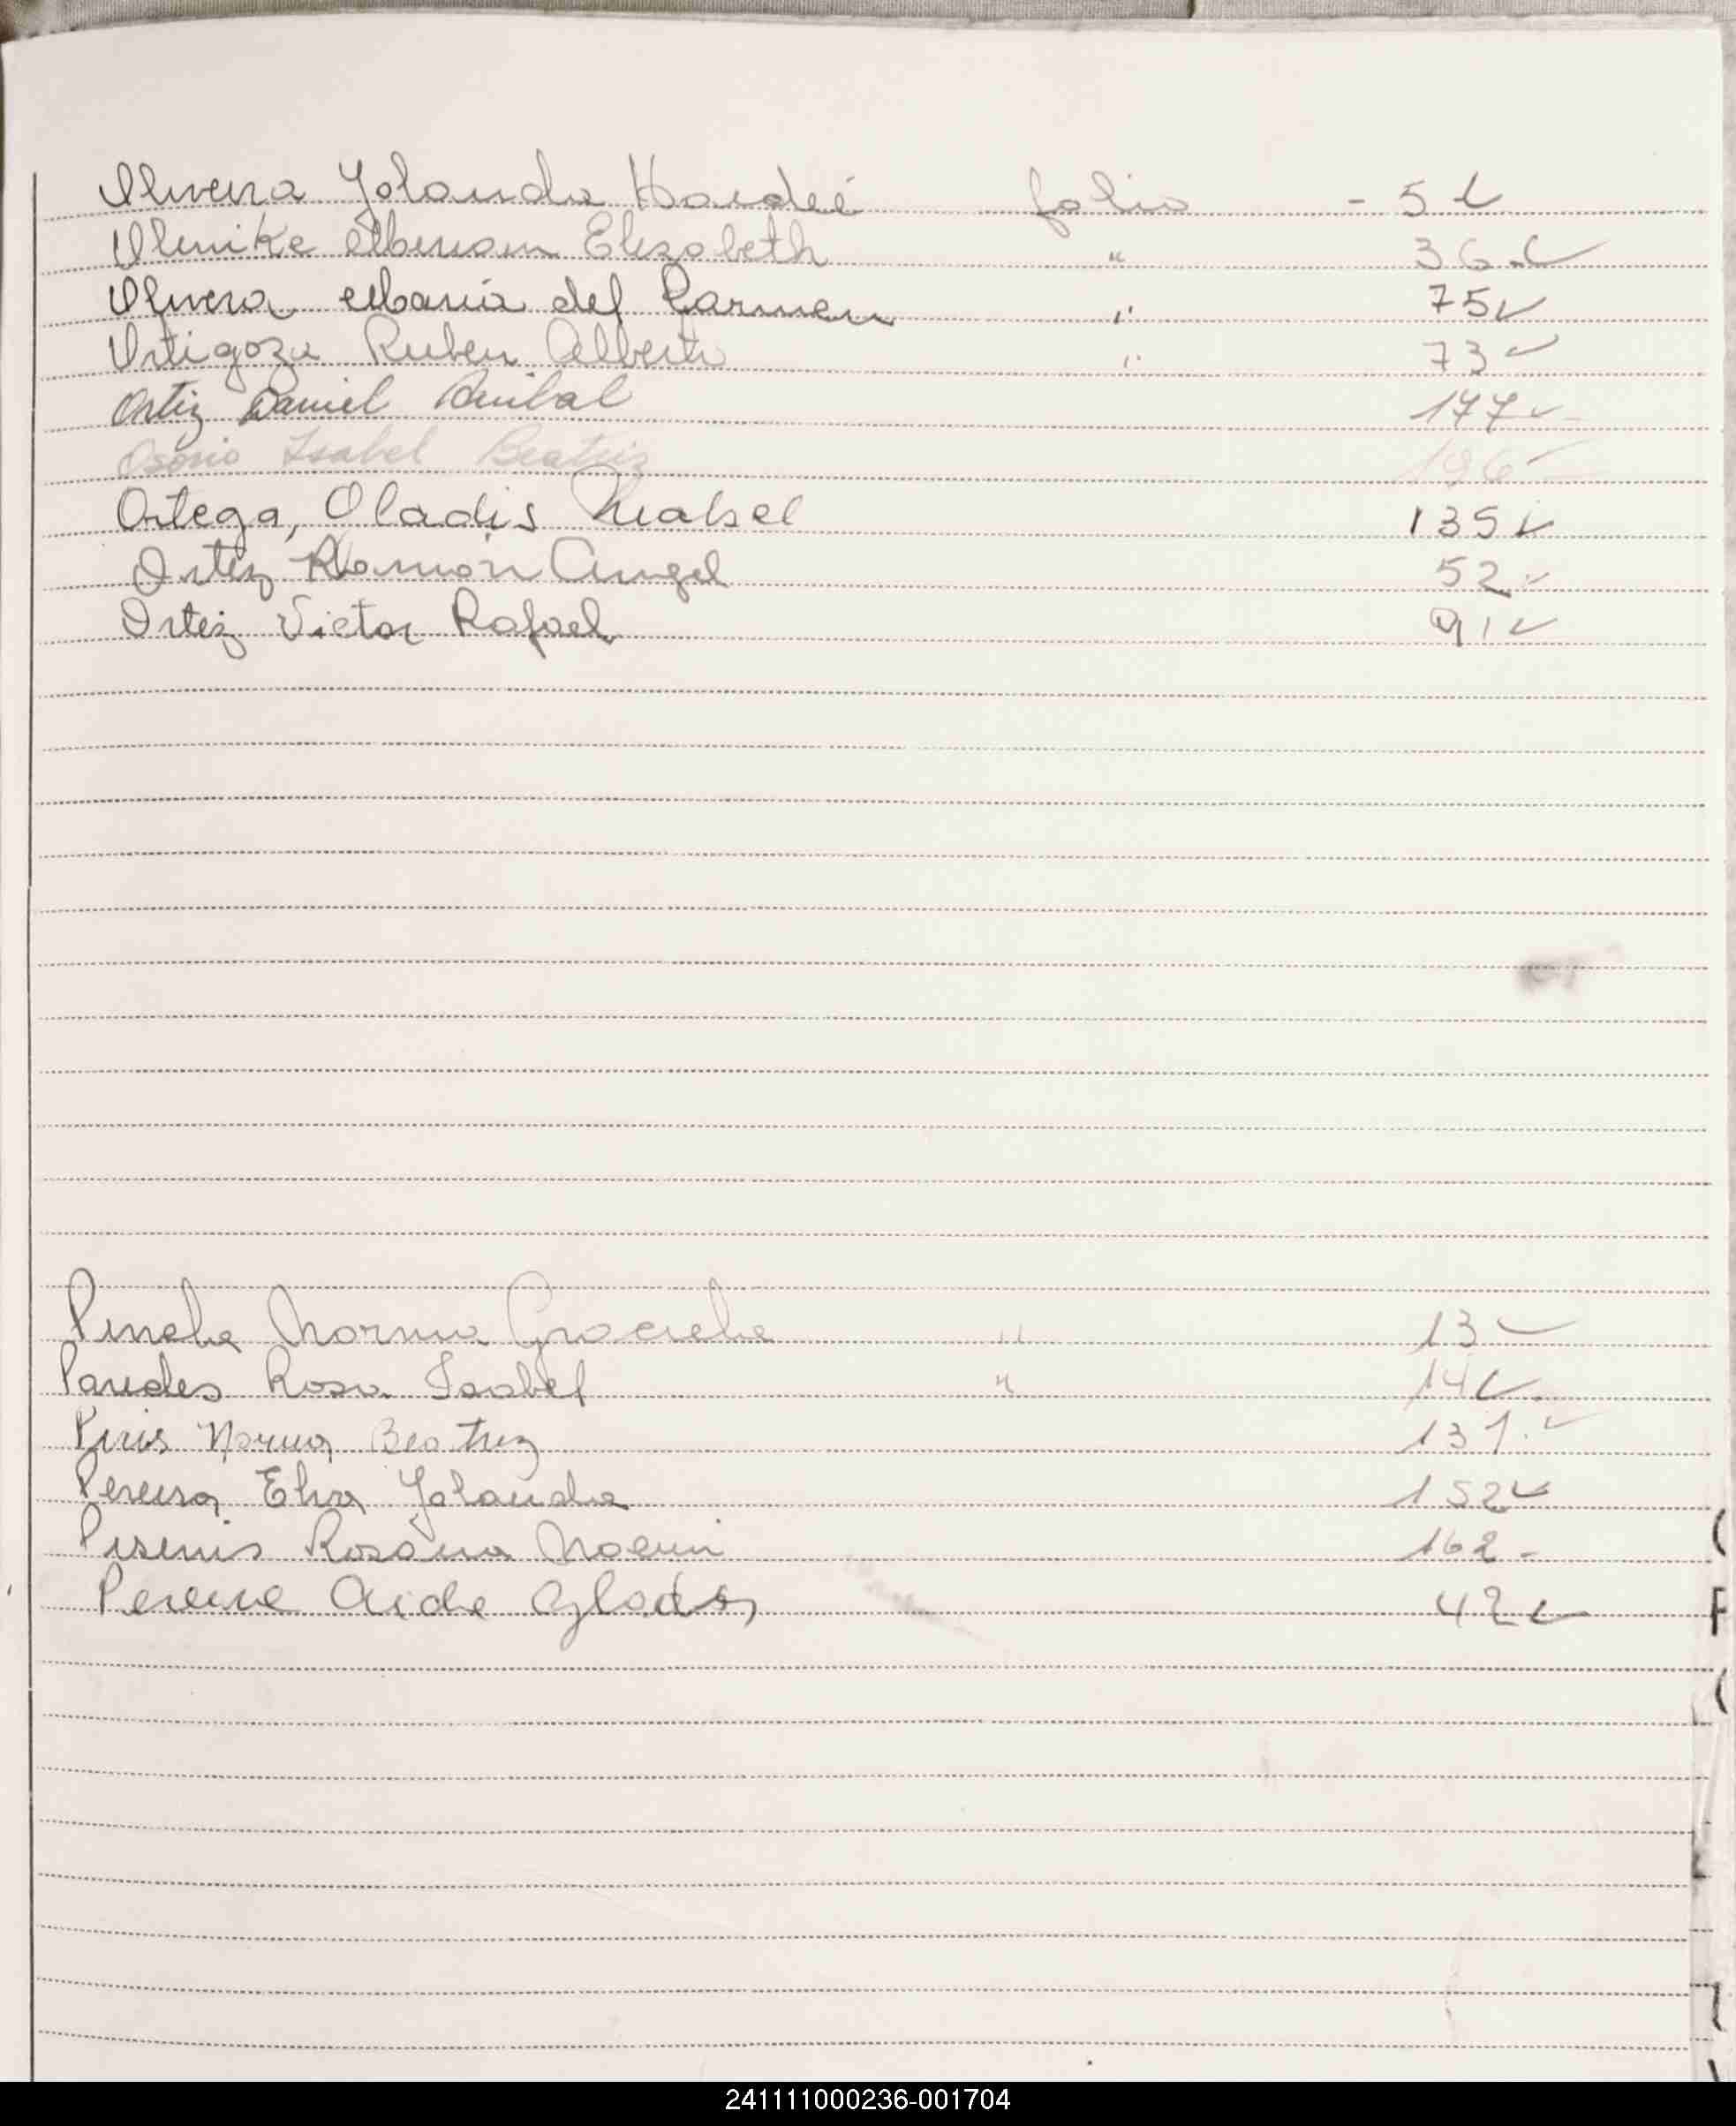 Oliveira Yolanda Haideé folio - 5 ✓
Olinike Miriam Elizabeth " 36 ✓
Olivera Maria del Carmen " 75 ✓
Ortigoza Ruben Alberto " 73 ✓
Ortiz Daniel Anibal 177 ✓
Osorio Isabel Beatriz 196 ✓
Ortega, Gladis Mabel 135 ✓
Ortiz Ramón Angel 52 ✓
Ortiz Victor Rafael 91 ✓
Norma Graciela " 13 ✓
Paredes Rosa Isabel " 14 ✓
Piris Norma Beatriz 131. ✓
Pereira Elva Yolanda 152 ✓
Rosana Noemi 162 -
Pereira Aide Gladys 42 ✓
241111000236-001704